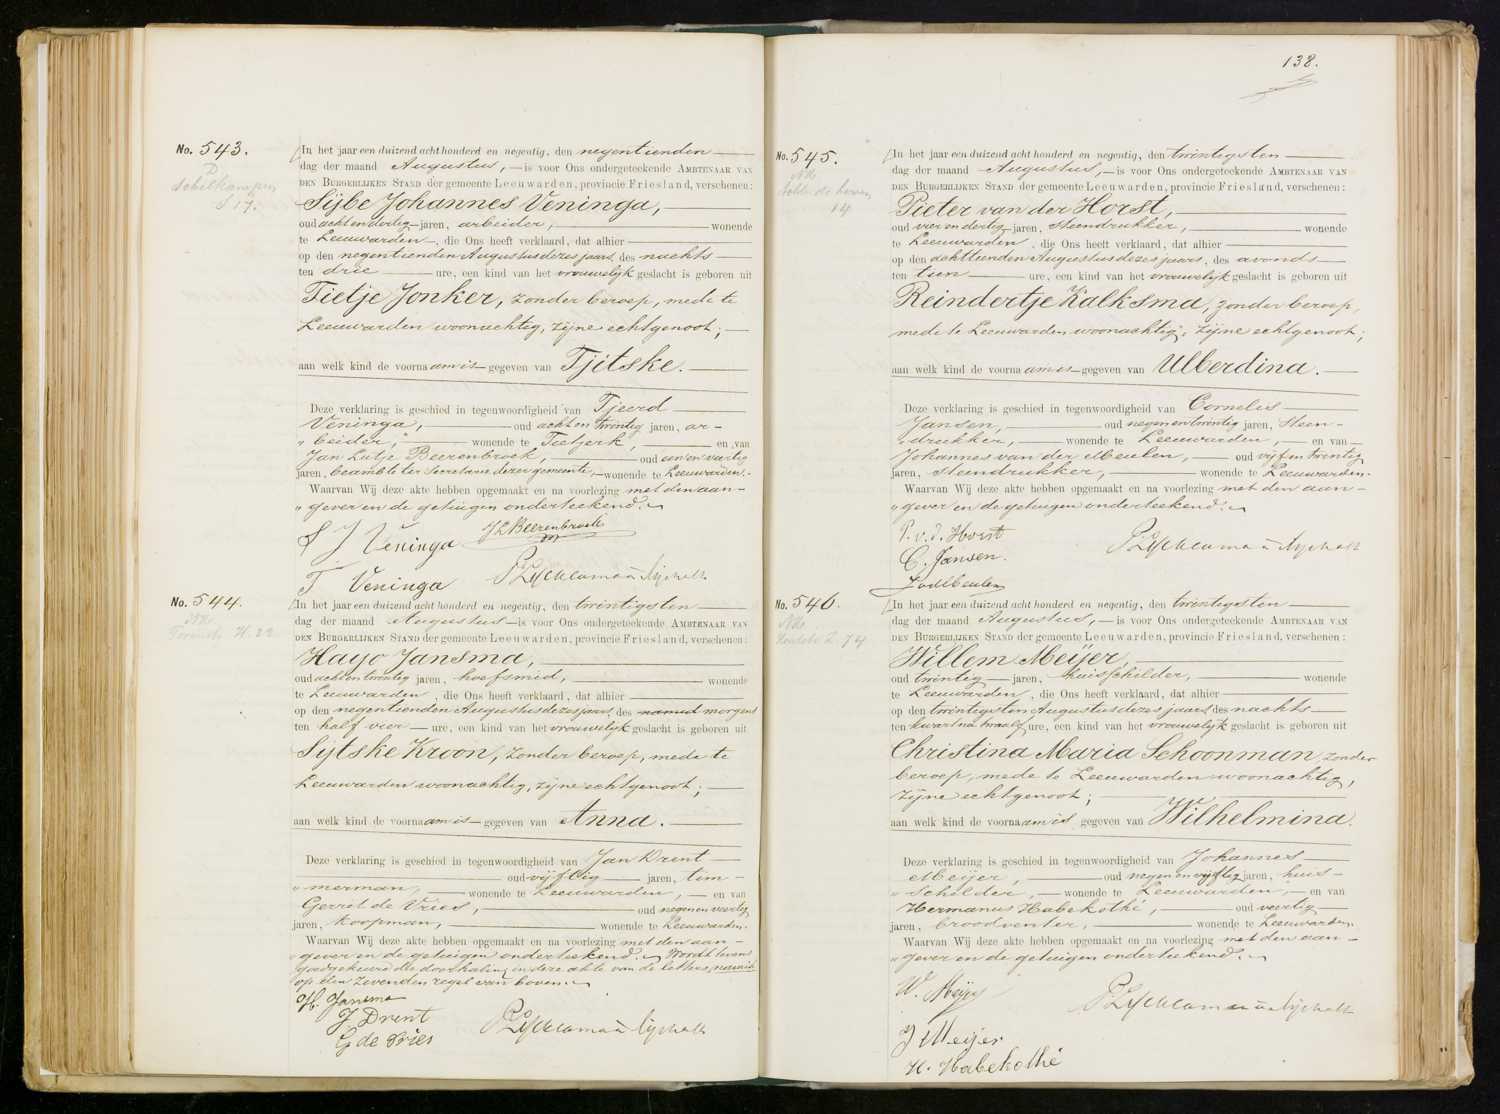 No. 543.
Schilkampen
S 17.
In het jaar een duizend acht honderd en negentig, den negentienden
dag der maand Augustus, is voor Ons ondergeteekende AMBTENAAR VAN
DEN BURGERLIJKEN STAND der gemeente Leeuwarden, provincie Friesland, verschenen:
Sijbe Johannes Veninga,
oud acht en dertig jaren, arbeider, wonende
te Leeuwarden, die Ons heeft verklaard, dat alhier
op den negentienden Augustus dezes jaars, des nachts
ten drie ure, een kind van het vrouwelijk geslacht is geboren uit
Tietje Jonker, zonder beroep, mede te
Leeuwarden woonachtig, zijne echtgenoot;
aan welk kind de voornaam is gegeven van Tjitske.
Deze verklaring is geschied in tegenwoordigheid van Tjeerd
Veninga, oud acht en twintig jaren, ar-
„beider, wonende te Tietjerk, en van
Jan Lutje Beerenbroek, oud een en veertig
jaren, beambte ter Secretarie dezer gemeente, wonende te Leeuwarden.
Waarvan Wij deze akte hebben opgemaakt en na voorlezing met den aan-
„gever en de getuigen onderteekend.
S J Veninga
JLBeerenbroek
T Veninga
No. 544.
H. 22
In het jaar een duizend acht honderd en negentig, den twintigsten
dag der maand Augustus is voor Ons ondergeteekende AMBTENAAR VAN
DEN BURGERLIJKEN STAND der gemeente Leeuwarden, provincie Friesland, verschenen:
Hayo Jansma,
oud acht en twintig jaren, hoefsmid, wonende
te Leeuwarden, die Ons heeft verklaard, dat alhier
op den negentienden Augustus dezes jaars, des namid morgens
ten half vier ure, een kind van het vrouwelijk geslacht is geboren uit
Sijtske Kroon, zonder beroep, mede te
Leeuwarden woonachtig, zijne echtgenoot;
aan welk kind de voornaam is gegeven van Anna.
Deze verklaring is geschied in tegenwoordigheid van Jan Drent
oud vijftig jaren, tim-
„merman, wonende te Leeuwarden, en van
Gerrit de Vries, oud negen en veertig
jaren, koopman, wonende te Leeuwarden.
Waarvan Wij deze akte hebben opgemaakt en na voorlezing met den aan-
„gever en de getuigen onderteekend. Wordt tevens
goedgekeurd de doorhaling in deze akte van de letters namid
op den zevenden regel van boven.
H. Jansma
J Drent
G de Vries
138.
No. 545.
14
In het jaar een duizend acht honderd en negentig, den twintigsten
dag der maand Augustus, is voor Ons ondergeteekende AMBTENAAR VAN
DEN BURGERLIJKEN STAND der gemeente Leeuwarden, provincie Friesland, verschenen:
Pieter van der Horst,
oud vier en dertig jaren, steendrukker, wonende
te Leeuwarden, die Ons heeft verklaard, dat alhier
op den achttienden Augustus dezes jaars, des avonds
ten tien ure, een kind van het vrouwelijk geslacht is geboren uit
Reindertje Kalksma, zonder beroep,
mede te Leeuwarden woonachtig, zijne echtgenoot;
aan welk kind de voornaam is gegeven van Ulberdina.
Deze verklaring is geschied in tegenwoordigheid van Cornelis
Jansen, oud negen en twintig jaren, steen-
„drukker, wonende te Leeuwarden, en van
Johannes van der Meulen, oud vijf en twintig
jaren, steendrukker, wonende te Leeuwarden.
Waarvan Wij deze akte hebben opgemaakt en na voorlezing met den aan-
„gever en de getuigen onderteekend.
P. v. d. Horst
C. Jansen.
JvdMeulen
No. 546.
74
In het jaar een duizend acht honderd en negentig, den twintigsten
dag der maand Augustus, is voor Ons ondergeteekende AMBTENAAR VAN
DEN BURGERLIJKEN STAND der gemeente Leeuwarden, provincie Friesland, verschenen:
Willem Meijer,
oud twintig jaren, huisschilder, wonende
te Leeuwarden, die Ons heeft verklaard, dat alhier
op den twintigsten Augustus dezes jaars, des nachts
ten kwart na twaalf ure, een kind van het vrouwelijk geslacht is geboren uit
Christina Maria Schoonman, zonder
beroep, mede te Leeuwarden woonachtig,
zijne echtgenoot;
aan welk kind de voornaam is gegeven van Wilhelmina.
Deze verklaring is geschied in tegenwoordigheid van Johannes
Meijer, oud negen en vijftig jaren, huis-
„schilder, wonende te Leeuwarden, en van
Hermanus Habekothé, oud veertig
jaren, broodventer, wonende te Leeuwarden.
Waarvan Wij deze akte hebben opgemaakt en na voorlezing met den aan-
„gever en de getuigen onderteekend.
W. Meijer
J Meijer
H. Habekothé